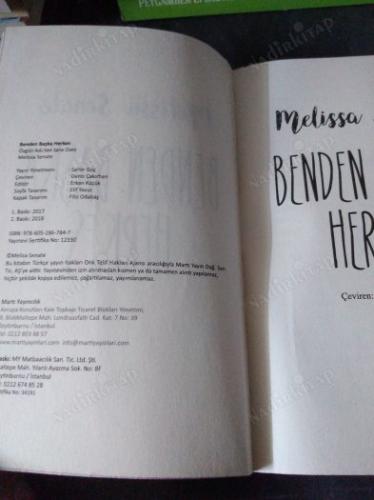 PEYGAMBER
Benden Başka Herkes
Melissa Senate
Yayın Yönetmeni : Şahin Güç
Çeviren :
Sayfa Tasarımı : Elif Yavuz
Kapak Tasarımı : Filiz Odabaş
1. Baskı: 2017
2. Baskı: 2018
Yayınevi Sertifika No: 12330
©Melissa Senate
Bu kitabın Türkçe yayın hakları Onk Telif Hakları Ajansı aracılığıyla Martı Yayın Dağ. San.
Tic. Aş'ye aittir. Yayınevinden izin alınmadan kısmen ya da tamamen alıntı yapılamaz,
hiçbir şekilde kopya edilemez, çoğaltılamaz, yayımlanamaz.
Martı Yayıncılık
Avrupa Konutları Kale Topkapı Ticaret Blokları Yönetimi,
Maltepe Mah. Kat: 7 No: 39
Zeytinburnu / İstanbul
0212 803 88 57
www.martiyayinlari.com info@martiyayinlari.com
Baskı: MY Matbaacılık San. Tic. Ltd. Şti.
Maltepe Mah. Yılanlı Ayazma Sok. No: 8F
Zeytinburnu / İstanbul
0212 674 85 28
Melissa
BENDEN
HER
Çeviren:
NADİRKİTAP